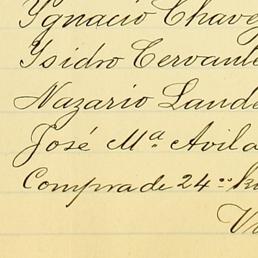 Ygnacio Chavez
Isidro Cervante
Nazario Lande
José Mª Avila
Compra de 24